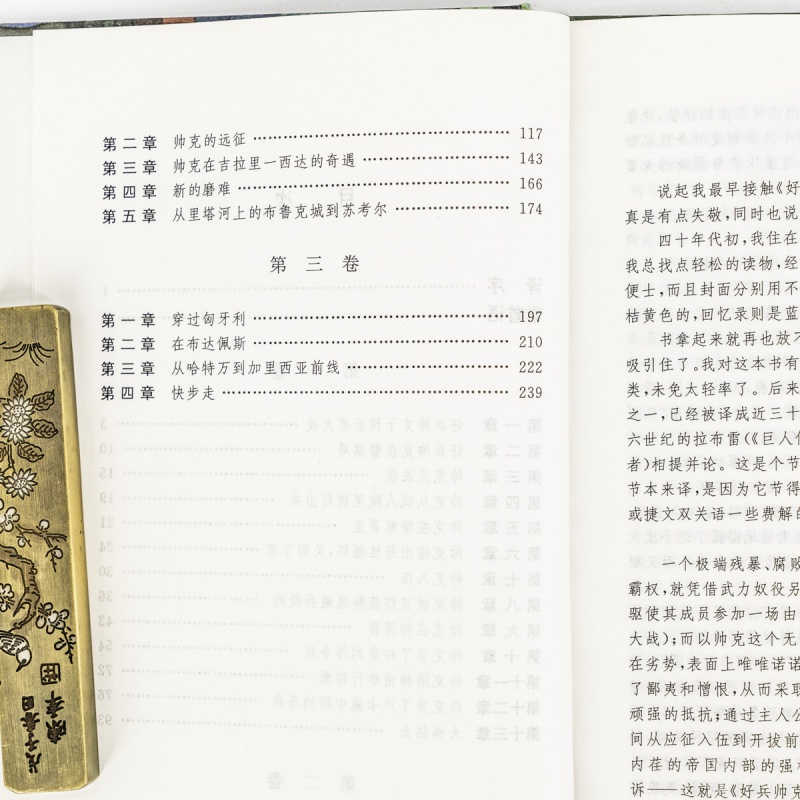 第二章 帅克的远征 117
第三章 帅克在吉拉里—西达的奇遇 143
第四章 新的磨难 166
第五章 从里塔河上的布鲁克城到苏考尔 174
第三卷
第一章 穿过匈牙利 197
第二章 在布达佩斯 210
第三章 从哈特万到加里西亚前线 222
第四章 快步走 239
说起我最早接触《好
真是有点失敬,同时也说
四十年代初,我住在
我总找点轻松的读物,经
便士,而且封面分别用不
桔黄色的,回忆录则是蓝
书拿起来就再也放不
吸引住了。我对这本书有
类,未免太轻率了。后来
之一,已经被译成近三十
六世纪的拉布雷(《巨人传
者)相提并论。这是个节
节本来译,是因为它节得
或捷文双关语一些费解的
一个极端残暴、腐败
霸权,就凭借武力奴役另
驱使其成员参加一场由
大战);而以帅克这个无
在劣势,表面上唯唯诺诺
了鄙夷和憎恨,从而采取
顽强的抵抗;通过主人公
间从应征入伍到开拔前
内荏的帝国内部的强
诉——这就是《好兵帅克